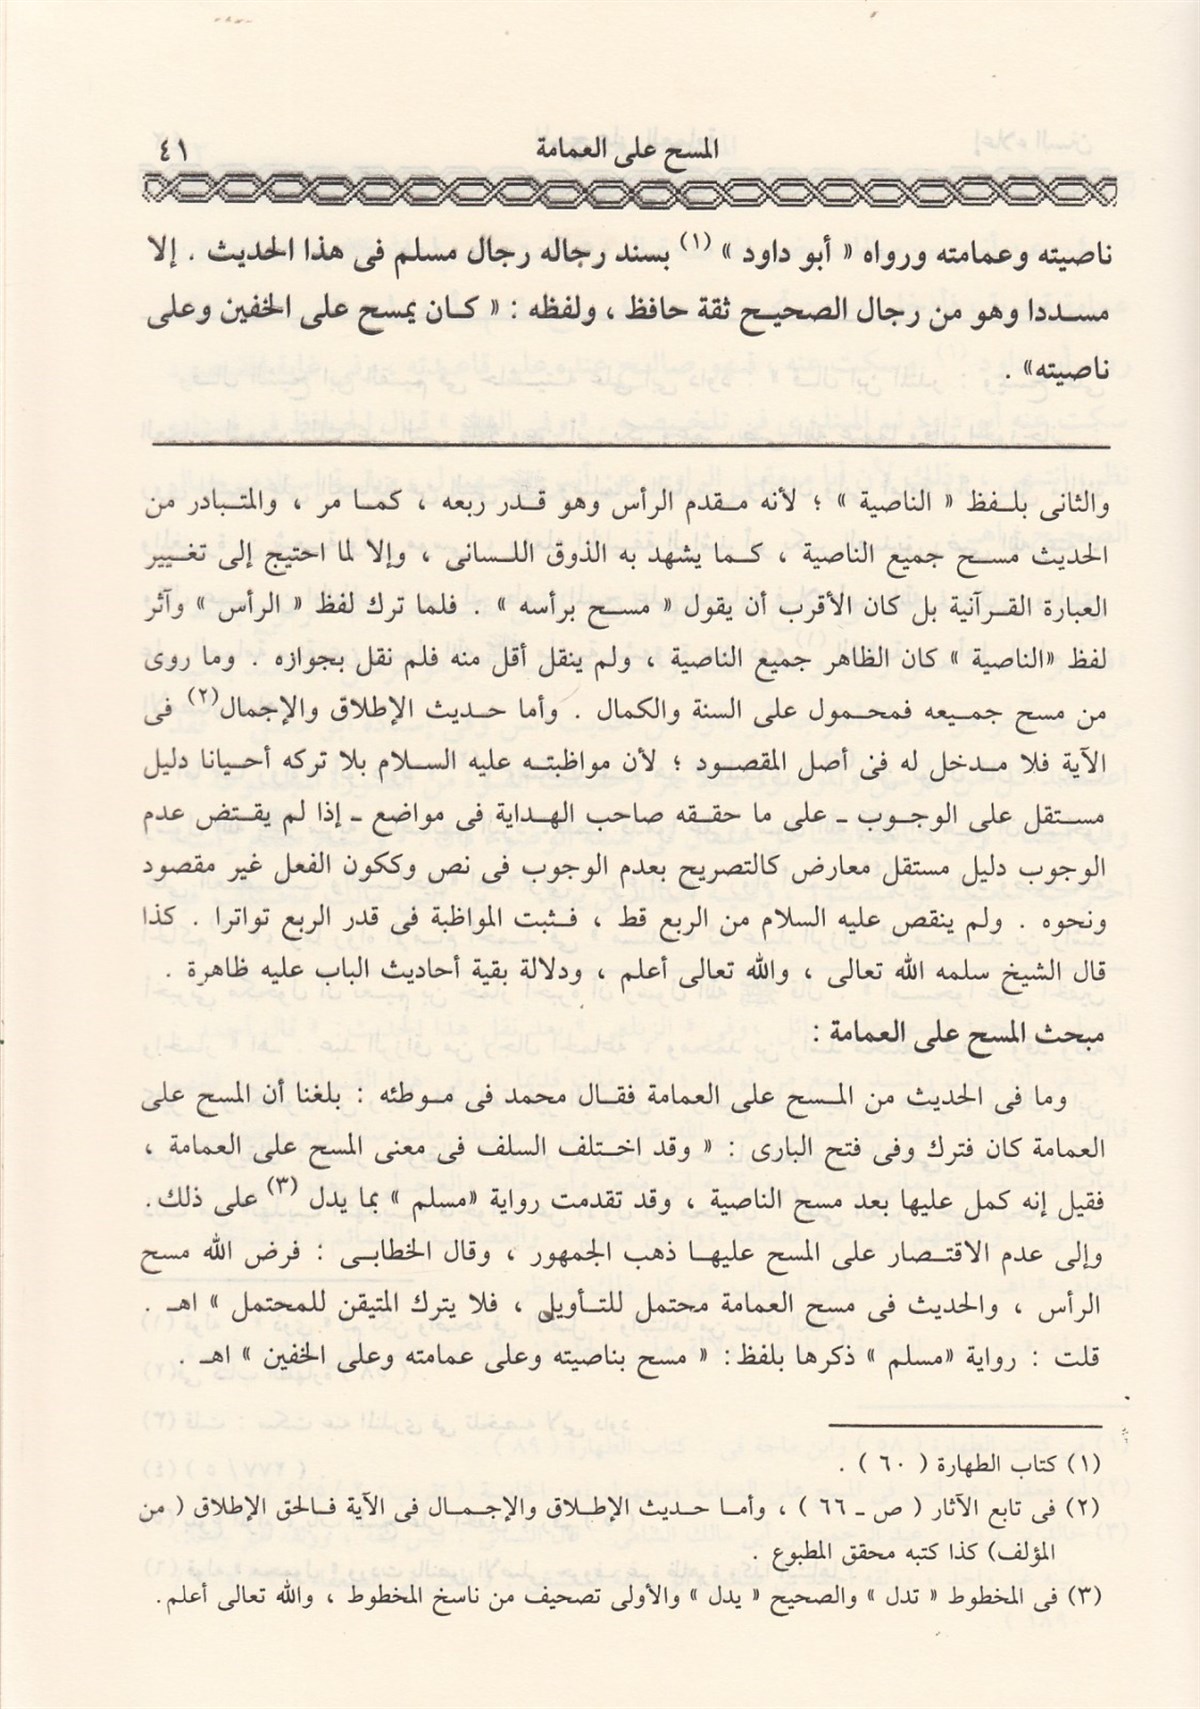 المسح على العمامة ٤١
ناصيته وعمامته ورواه « أبو داود » (١) بسند رجاله رجال مسلم فى هذا الحديث . إلا
مسددا وهو من رجال الصحيح ثقة حافظ ، ولفظه : « كان يمسح على الخفين وعلى
ناصيته» .
والثانى بلفظ « الناصية » ؛ لأنه مقدم الرأس وهو قدر ربعه ، كما مر ، والمتبادر من
الحديث مسح جميع الناصية ، كما يشهد به الذوق اللسانى ، وإلا لما احتيج إلى تغيير
العبارة القرآنية بل كان الأقرب أن يقول « مسح برأسه » . فلما ترك لفظ « الرأس » وآثر
لفظ «الناصية » كان الظاهر جميع الناصية ، ولم ينقل أقل منه فلم نقل بجوازه . وما روى
من مسح جميعه فمحمول على السنة والكمال . وأما حديث الإطلاق والإجمال(٢) فى
الآية فلا مدخل له فى أصل المقصود ؛ لأن مواظبته عليه السلام بلا تركه أحيانا دليل
مستقل على الوجوب ـ على ما حققه صاحب الهداية فى مواضع ـ إذا لم يقتض عدم
الوجوب دليل مستقل معارض كالتصريح بعدم الوجوب فى نص وككون الفعل غير مقصود
ونحوه . ولم ينقص عليه السلام من الربع قط ، فثبت المواظبة فى قدر الربع تواترا . كذا
قال الشيخ سلمه الله تعالى ، والله تعالى أعلم ، ودلالة بقية أحاديث الباب عليه ظاهرة .
مبحث المسح على العمامة :
وما فى الحديث من المسح على العمامة فقال محمد فى موطئه : بلغنا أن المسح على
العمامة كان فترك وفى فتح البارى : « وقد اختلف السلف فى معنى المسح على العمامة ،
فقيل إنه كمل عليها بعد مسح الناصية ، وقد تقدمت رواية «مسلم » بما يدل (٣) على ذلك.
وإلى عدم الاقتصار على المسح عليها ذهب الجمهور ، وقال الخطابى : فرض الله مسح
الرأس ، والحديث فى مسح العمامة محتمل للتأويل ، فلا يترك المتيقن للمحتمل » اهـ .
قلت : رواية «مسلم » ذكرها بلفظ: « مسح بناصيته وعلى عمامته وعلى الخفين » اهـ .
(١) كتاب الطهارة ( ٦٠ ) .
(٢) فى تابع الآثار ( ص ـ ٦٦ ) ، وأما حديث الإطلاق والإجمال فى الآية فالحق الإطلاق ( من
المؤلف) كذا كتبه محقق المطبوع .
(٣) فى المخطوط « تدل » والصحيح « يدل » والأولى تصحيف من ناسخ المخطوط ، والله تعالى أعلم.